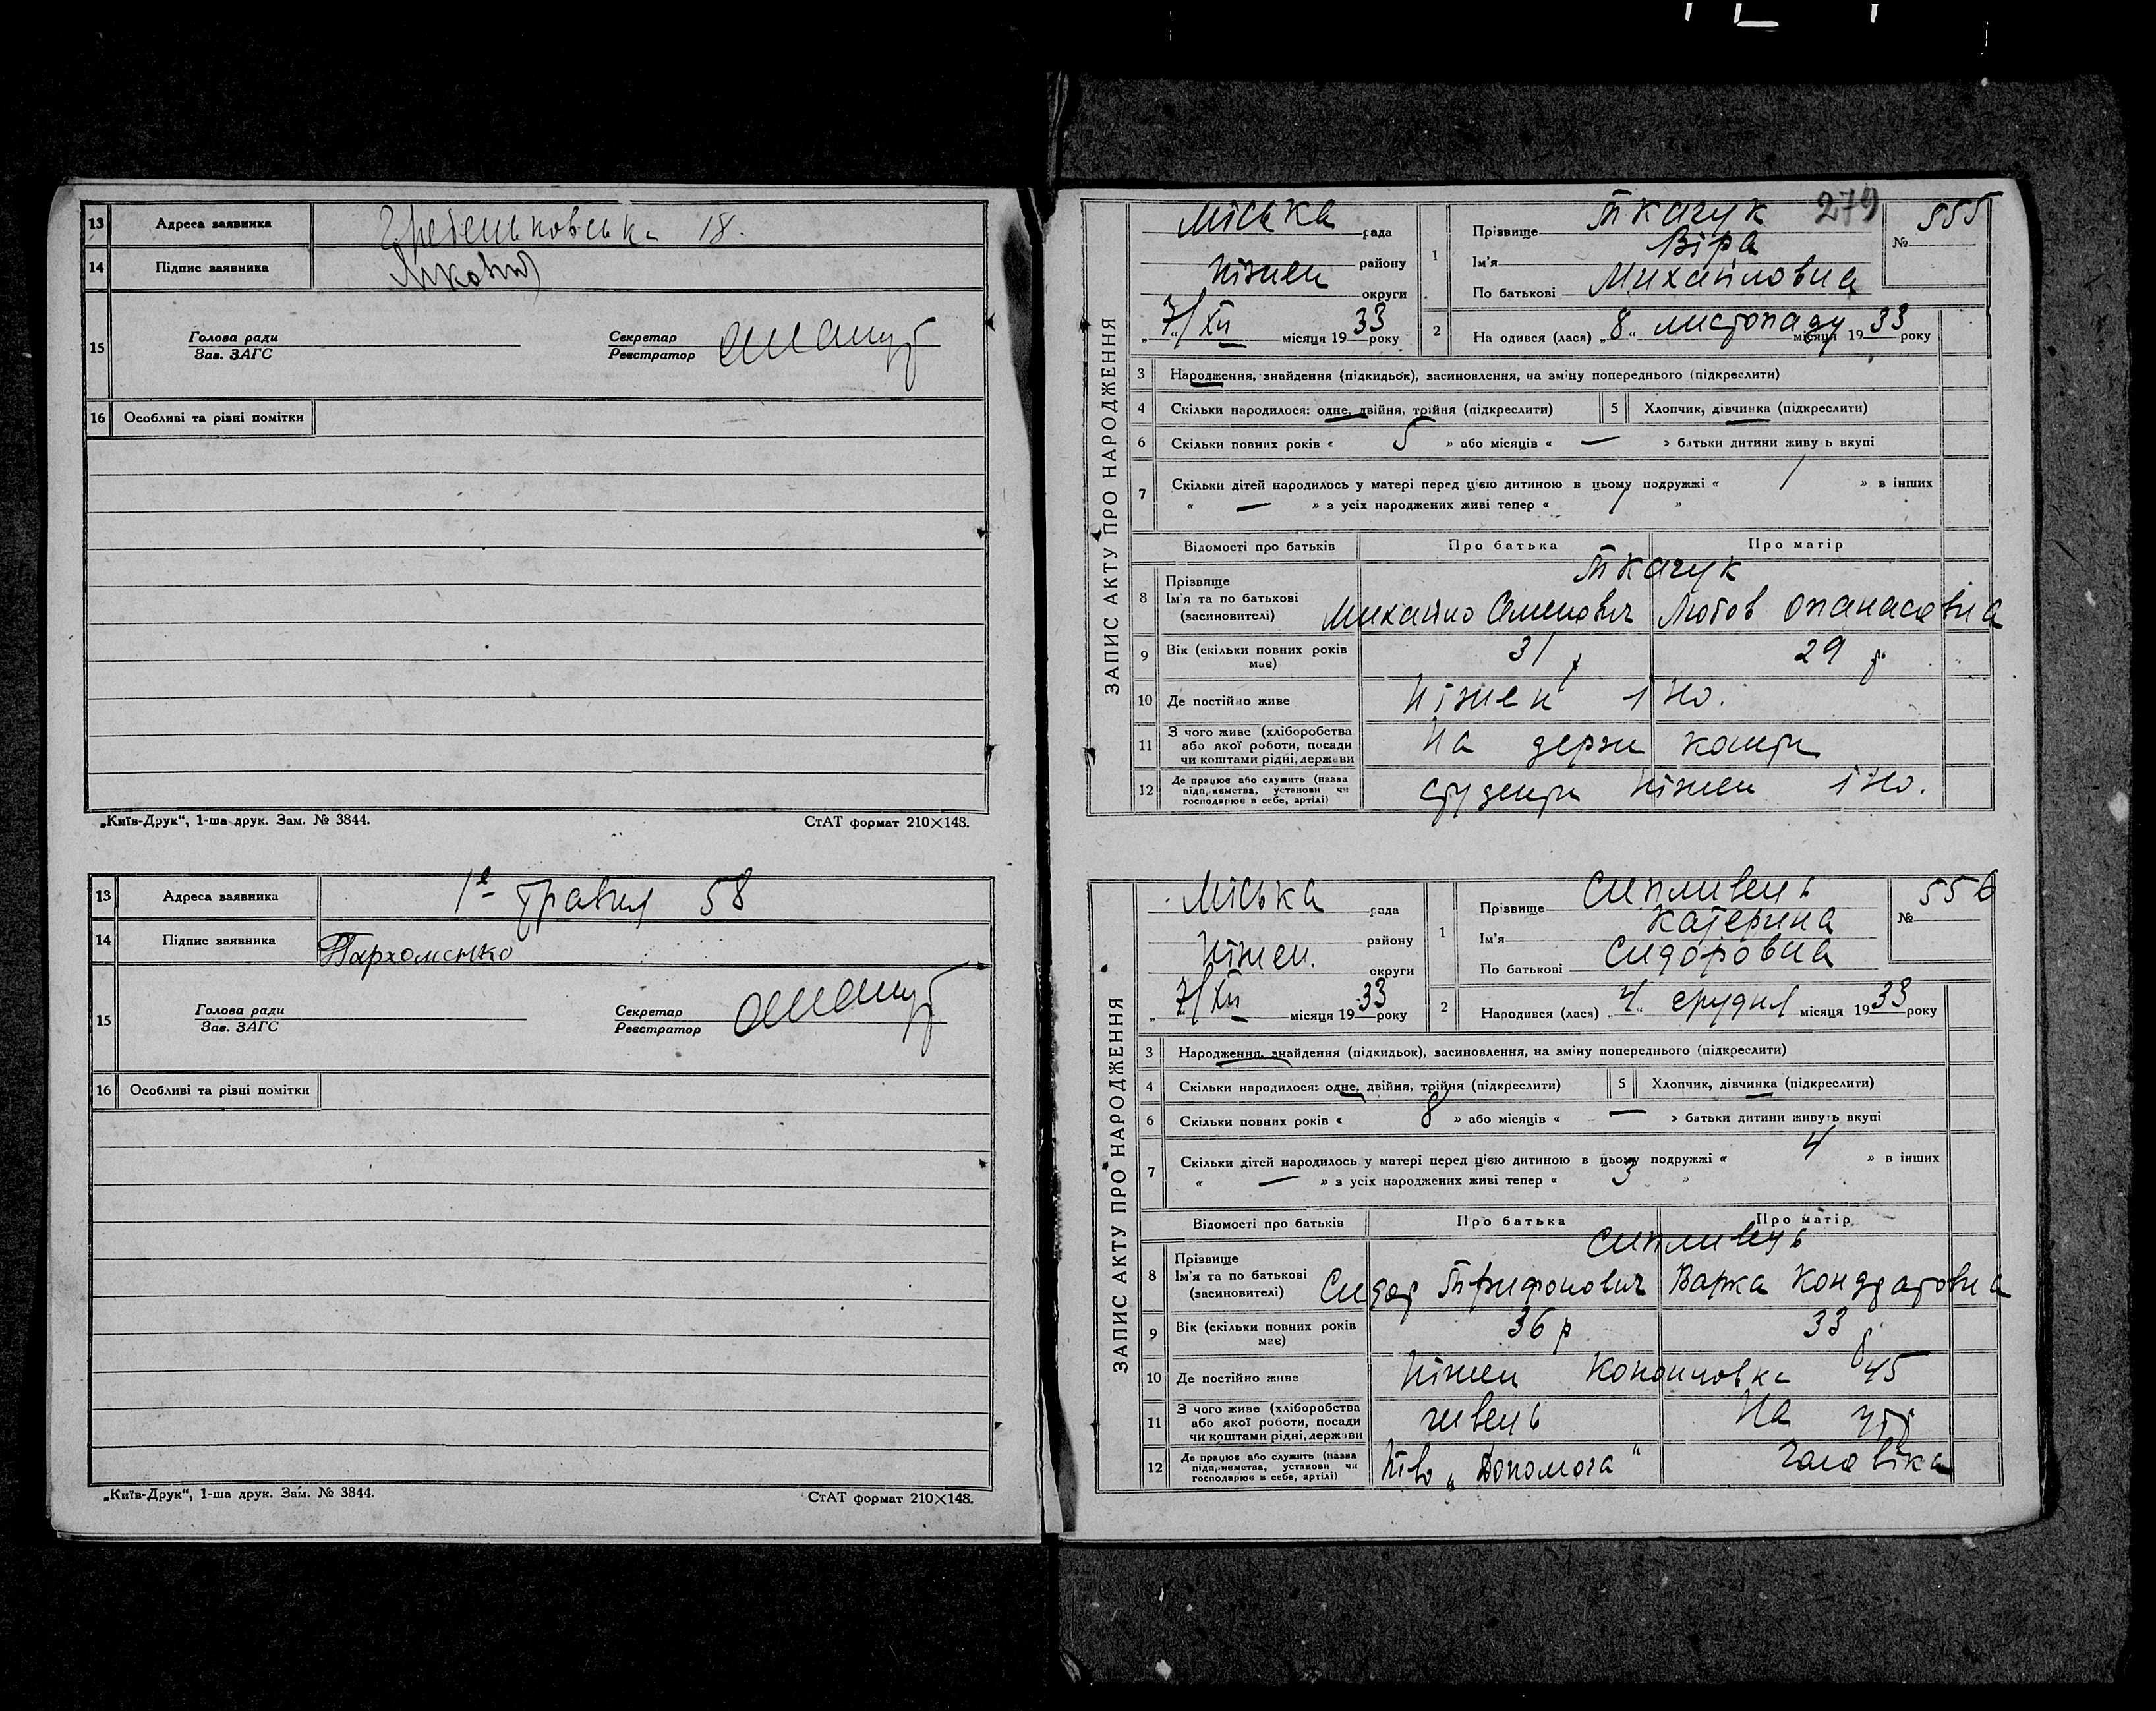 13 Адреса заявника Гребеньковська 18.
14 Підпис заявника
15 Голова ради Зав. ЗАГС Секретар Реєстратор
16 Особливі та різні помітки
„Київ-Друк“, 1-ша друк. Зам. № 3844. СтАТ формат 210×148.
13 Адреса заявника 1е травня 58
14 Підпис заявника Пархоменко
15 Голова ради Зав. ЗАГС Секретар Реєстратор
16 Особливі та різні помітки
„Київ-Друк“, 1-ша друк. Зам. № 3844. СтАТ формат 210×148.
279
ЗАПИС АКТУ ПРО НАРОДЖЕННЯ
Міська рада
Ніжен району
округи
7/XII місяця 1933 року
1 Прізвище Ткачук
Ім'я Віра
По батькові Михайловна
№ 555
2 На одився (лася) „8“ листопаду місяця 1933 року
3 Народження, знайдення (підкидьок), засиновлення, на зміну попереднього (підкреслити)
4 Скільки народилося: одне, двійня, трійня (підкреслити) 5 Хлопчик, дівчинка (підкреслити)
6 Скільки повних років « 5 » або місяців « — » батьки дитини живу ь вкупі
7 Скільки дітей народилось у матері перед цією дитиною в цьому подружжі « 1 » в інших
« — » з усіх народжених живі тепер « 1 »
Відомості про батьків Про батька Про матір
8 Прізвище Ім'я та по батькові (засиновителі) Ткачук
Михайло Семенович Любов Опанасовна
9 Вік (скільки повних років має) 31 р 29 р.
10 Де постійно живе Ніжен ІНО.
11 З чого живе (хліборобства або якої роботи, посади чи коштами рідні, держави На держ кошти
12 Де працює або служить (назва підприємства, установи чи господарює в себе, артілі) студенти Ніжен ІНО.
ЗАПИС АКТУ ПРО НАРОДЖЕННЯ
Міська рада
Ніжен. району
округи
7/XII місяця 1933 року
1 Прізвище Сипливець
Ім'я Катерина
По батькові Сидоровна
№ 556
2 Народився (лася) „4“ грудня місяця 1933 року
3 Народження, знайдення (підкидьок), засиновлення, на зміну попереднього (підкреслити)
4 Скільки народилося: одне, двійня, трійня (підкреслити) 5 Хлопчик, дівчинка (підкреслити)
6 Скільки повних років « 8 » або місяців « — » батьки дитини живуть вкупі
7 Скільки дітей народилось у матері перед цією дитиною в цьому подружжі « 4 » в інших
« — » з усіх народжених живі тепер « 3 »
Відомості про батьків Про батька Про матір
8 Прізвище Ім'я та по батькові (засиновителі) Сипливець
Сидор Трифонович Варка Кондратовна
9 Вік (скільки повних років має) 36 р 33 р
10 Де постійно живе Ніжен 45
11 З чого живе (хліборобства або якої роботи, посади чи коштами рідні, держави На утр
12 Де працює або служить (назва підприємства, установи чи господарює в себе, артілі) „Допомога“ чоловіка